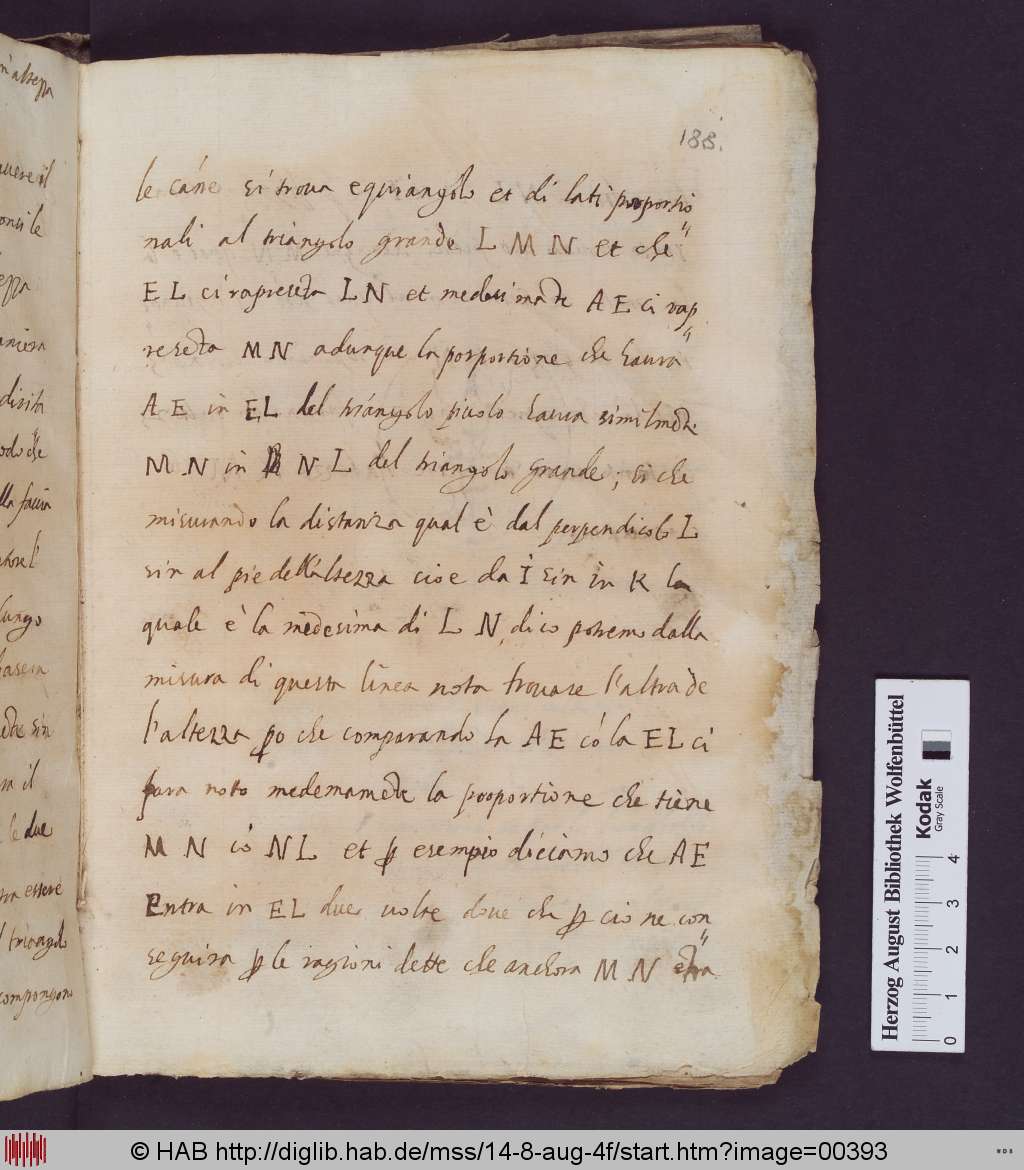 188.
le cane si trova equiangolo et di lati proportio
nali al triangolo grande L M N et che
E L ci rapreseta L N et medesimate A E ci rap
reseta M N adunque la porportione che havra
A E in E L del triangolo picolo havra similmete
M N in N L del triangolo grande; si che
misurando la distanza qual è dal perpendicolo I
sin al pie dell'altezza cioe da I sin in K la
quale è la medesima di L N, dico potremo dalla
misura di questa linea nota trovare l'altra de
l'altezza po che comparando la A E có la E L ci
fara noto medemamete la proportione che tiene
M N có N L et p esempio diciamo che A E
Entra in E L due volte dove che p cio ne con
seguira p le ragioni dette che anchora M N etra
n altezza
il
le
aniera
divisa
odo che
lla faccia
l'
lungo
sin
il
le due
essere
l triangolo
compongono
Herzog August Bibliothek Wolfenbüttel
Kodak
Gray Scale
0 1 2 3 4
© HAB http://diglib.hab.de/mss/14-8-aug-4f/start.htm?image=00393